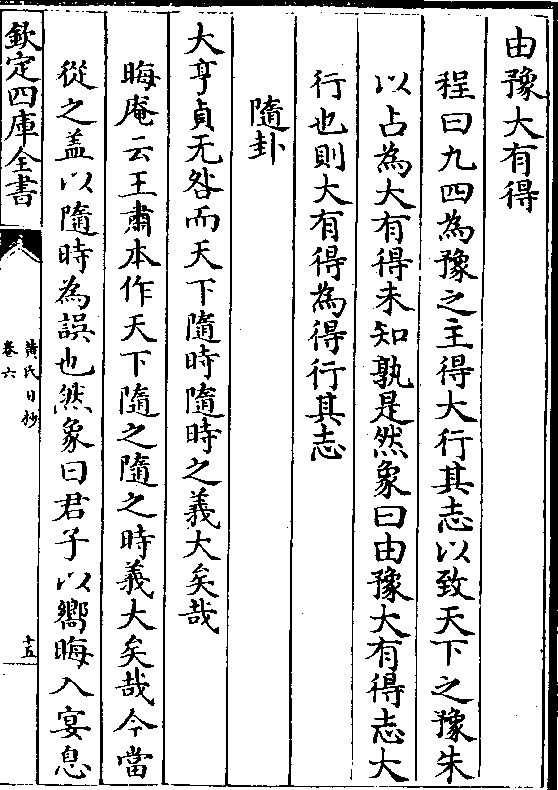 由豫大有得
程曰九四為豫之主得大行其志以致天下之豫朱
以占為大有得未知孰是然象曰由豫大有得志大
行也則大有得為得行其志
隨卦
大亨貞无咎而天下隨時隨時之義大矣哉
晦庵云王肅本作天下隨之隨之時義大矣哉今當
從之盖以隨時為誤也然象曰君子以嚮晦入宴息
欽定四庫全書
黄氏日抄
卷六
十五